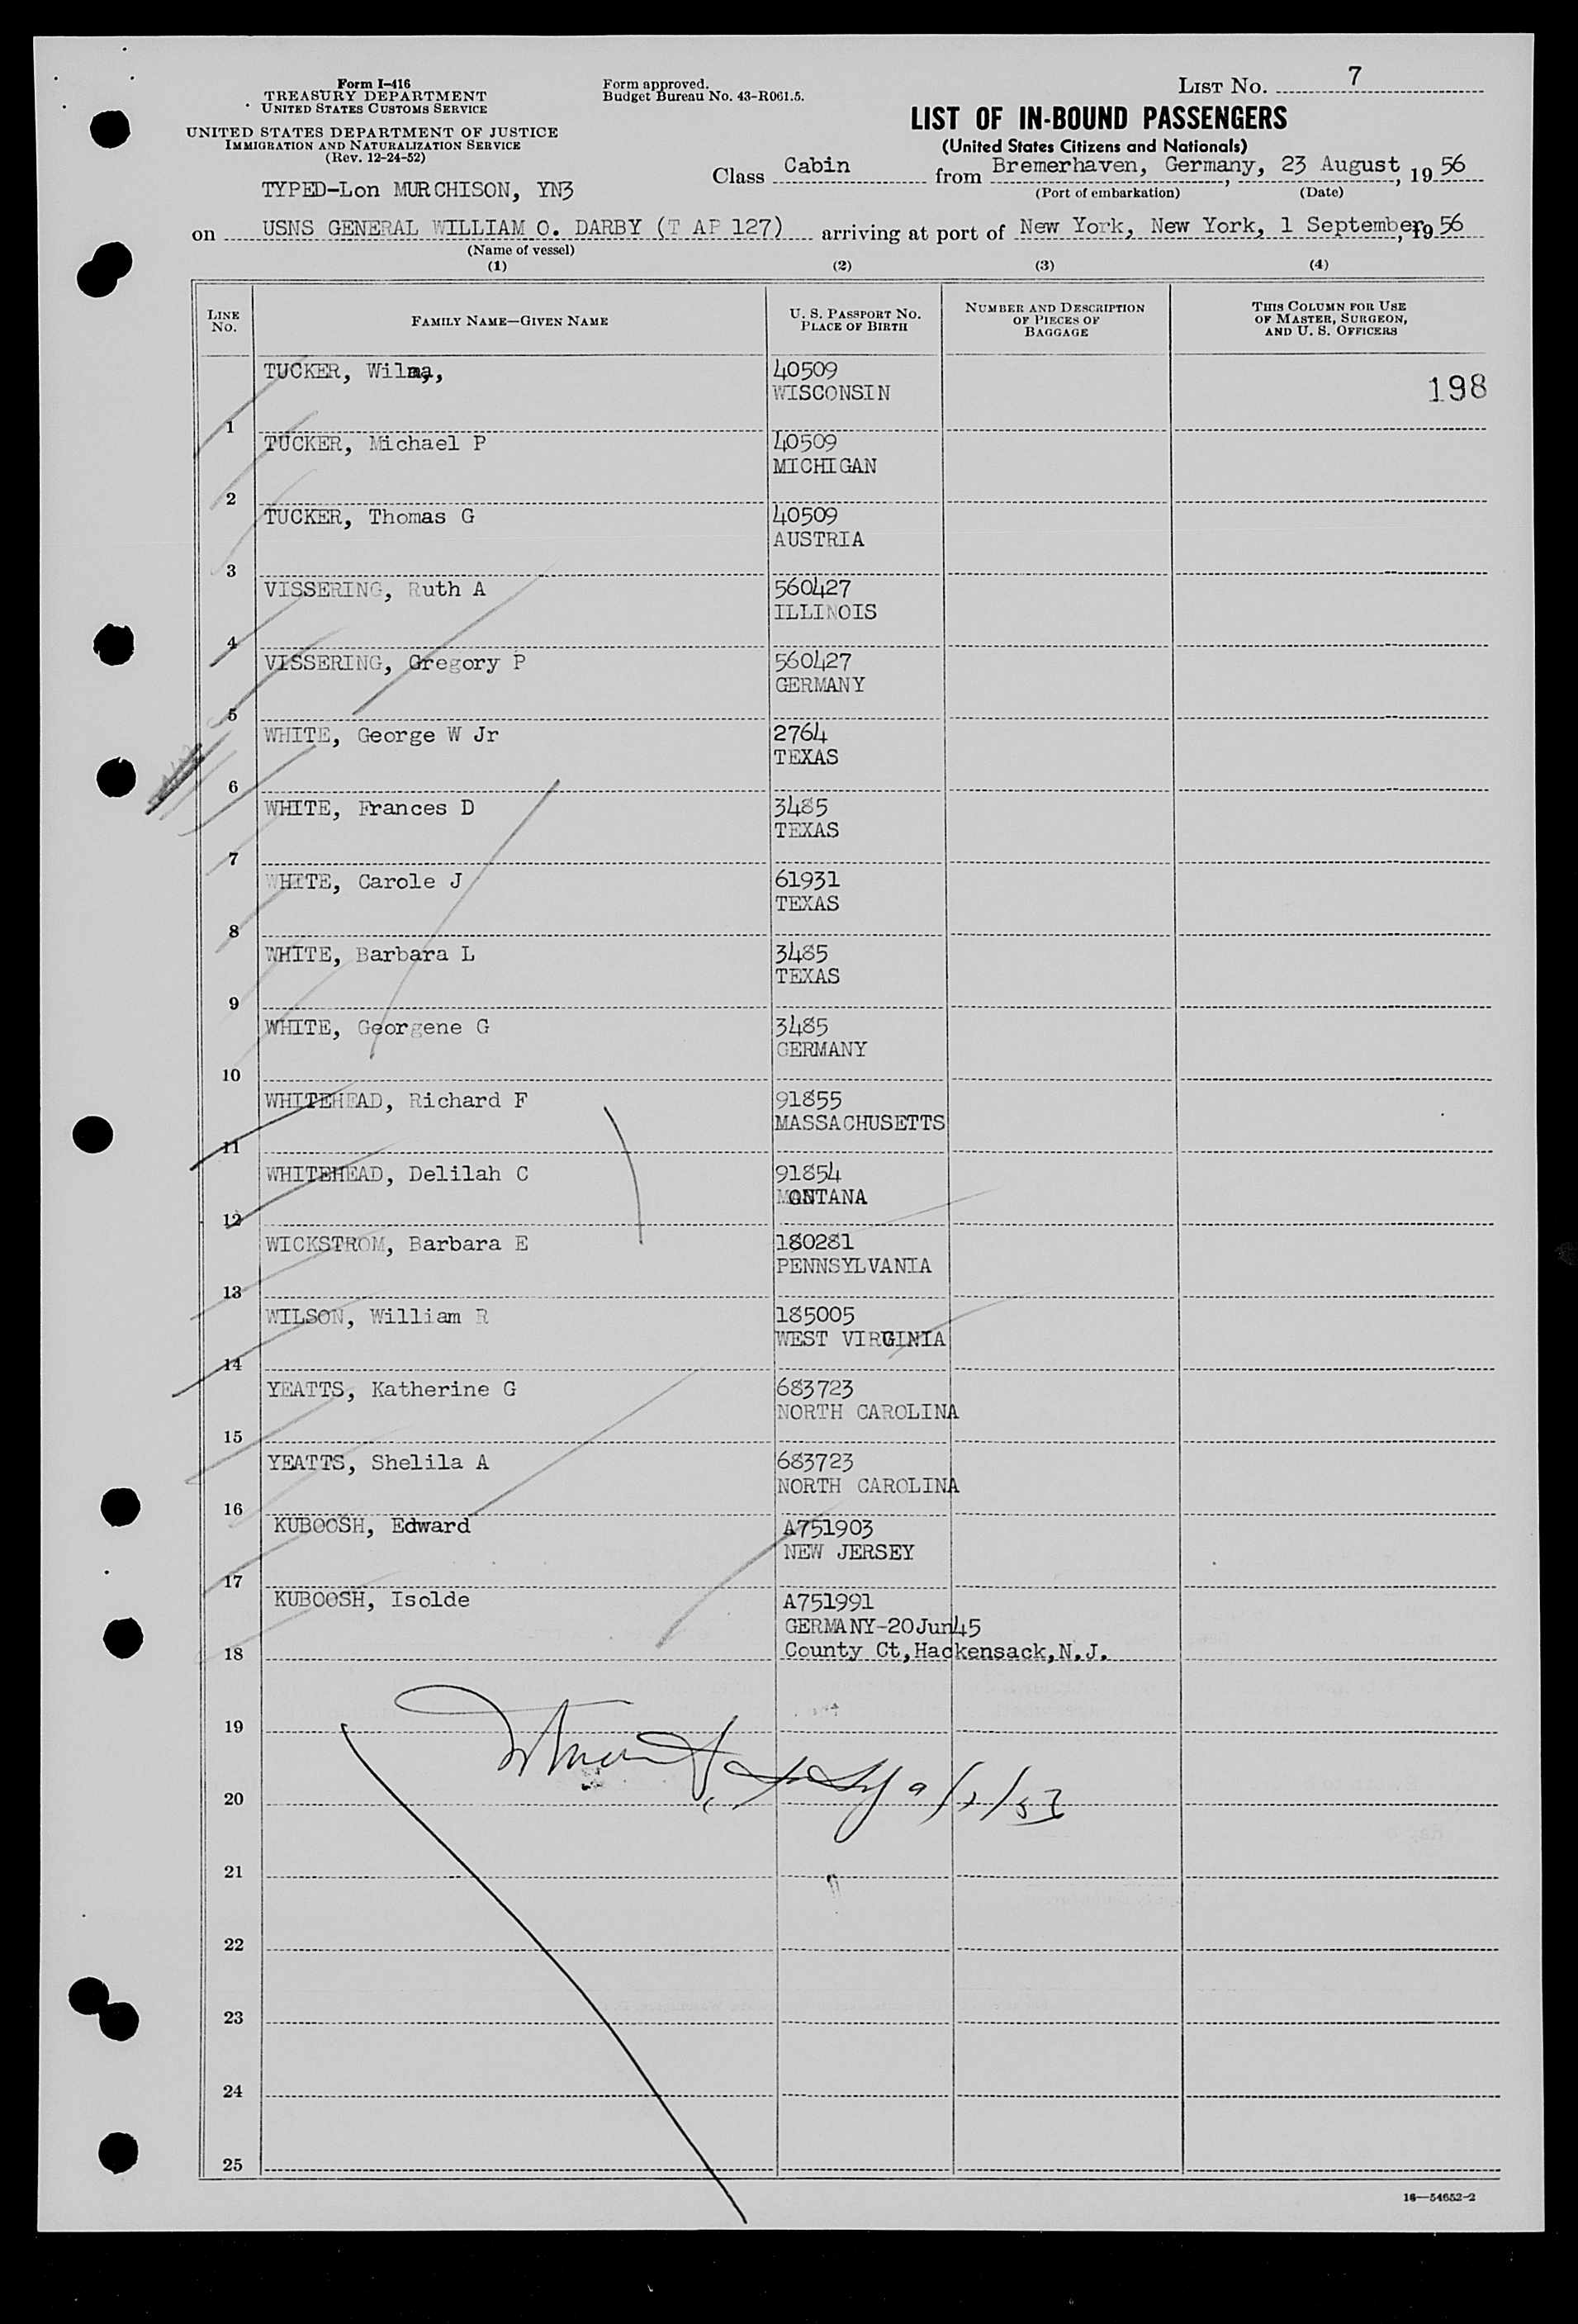 Form I-416
TREASURY DEPARTMENT
UNITED STATES CUSTOMS SERVICE
UNITED STATES DEPARTMENT OF JUSTICE
IMMIGRATION AND NATURALIZATION SERVICE
(Rev. 12-24-52)
Form approved.
Budget Bureau No. 43-R061.5.
LIST NO. 7
LIST OF IN-BOUND PASSENGERS
(United States Citizens and Nationals)
TYPED-Lon MURCHISON, YN3
Class Cabin from Bremerhaven, Germany, 23 August, 19 56
(Port of embarkation) (Date)
on USNS GENERAL WILLIAM O. DARBY (T AP 127) arriving at port of New York, New York, 1 September, 19 56
(Name of vessel)
(1) (2) (3) (4)
LINE NO.
FAMILY NAME—GIVEN NAME
U. S. PASSPORT NO.
PLACE OF BIRTH
NUMBER AND DESCRIPTION
OF PIECES OF
BAGGAGE
THIS COLUMN FOR USE
OF MASTER, SURGEON,
AND U. S. OFFICERS
TUCKER, Wilma, 40509
WISCONSIN 198
1
TUCKER, Michael P 40509
MICHIGAN
2
TUCKER, Thomas G 40509
AUSTRIA
3
VISSERING, Ruth A 560427
ILLINOIS
4
VISSERING, Gregory P 560427
GERMANY
5
WHITE, George W Jr 2764
TEXAS
6
WHITE, Frances D 3485
TEXAS
7
WHITE, Carole J 61931
TEXAS
8
WHITE, Barbara L 3485
TEXAS
9
WHITE, Georgene G 3485
GERMANY
10
WHITEHEAD, Richard F 91855
MASSACHUSETTS
11
WHITEHEAD, Delilah C 91854
MONTANA
12
WICKSTROM, Barbara E 180281
PENNSYLVANIA
13
WILSON, William R 185005
WEST VIRGINIA
14
YEATTS, Katherine G 683723
NORTH CAROLINA
15
YEATTS, Shelila A 683723
NORTH CAROLINA
16
KUBOOSH, Edward A751903
NEW JERSEY
17
KUBOOSH, Isolde A751991
GERMANY-20Jun45
18 County Ct,Hackensack,N.J.
19
20
21
22
23
24
25
16—54652-2